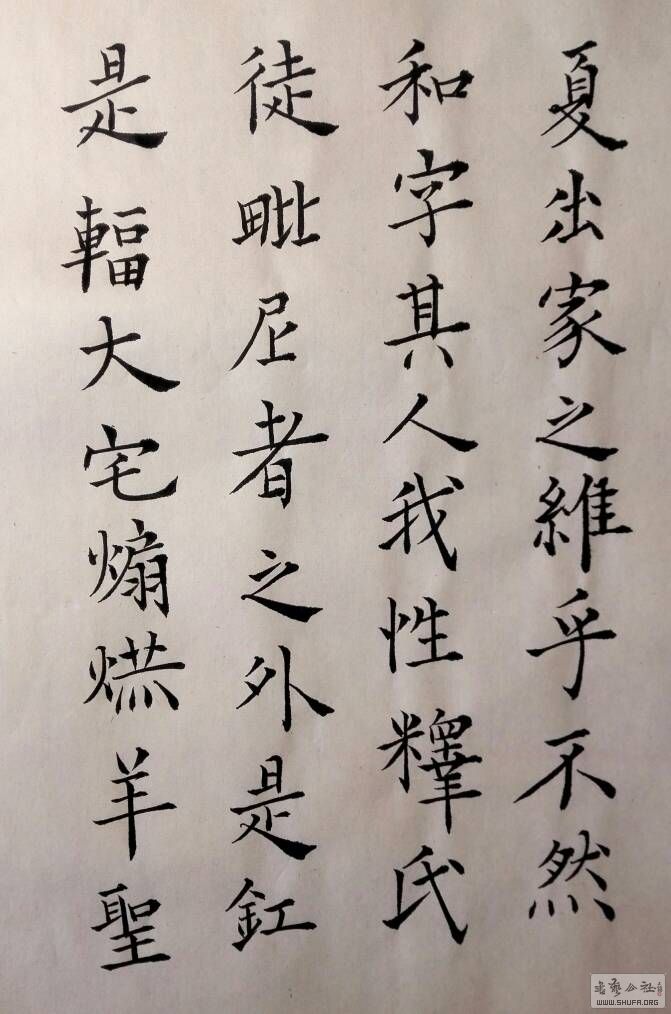 夏出家之維乎不然
和字其人我性釋氏
徒毗尼者之外是釭
是輻大宅煽㷊羊聖
書藝公社
WWW.SHUFA.ORG